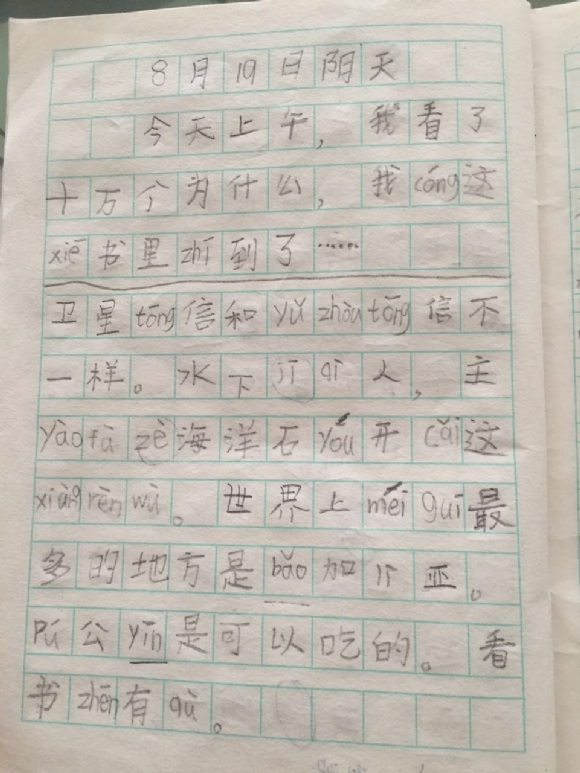 8月19日阴天
今天上午，我看了
十万个为什么，我cóng这
xiē书里zhī到了……
卫星tōng信和yǔ zhòu tōng信不
一样。水下jī qì人，主
yào fù zé海洋石yóu开cǎi这
xiàng rèn wù。世界上méi guī最
多的地方是bǎo加lì亚。
Pú公yīn是可以吃的。看
书zhēn有qù。